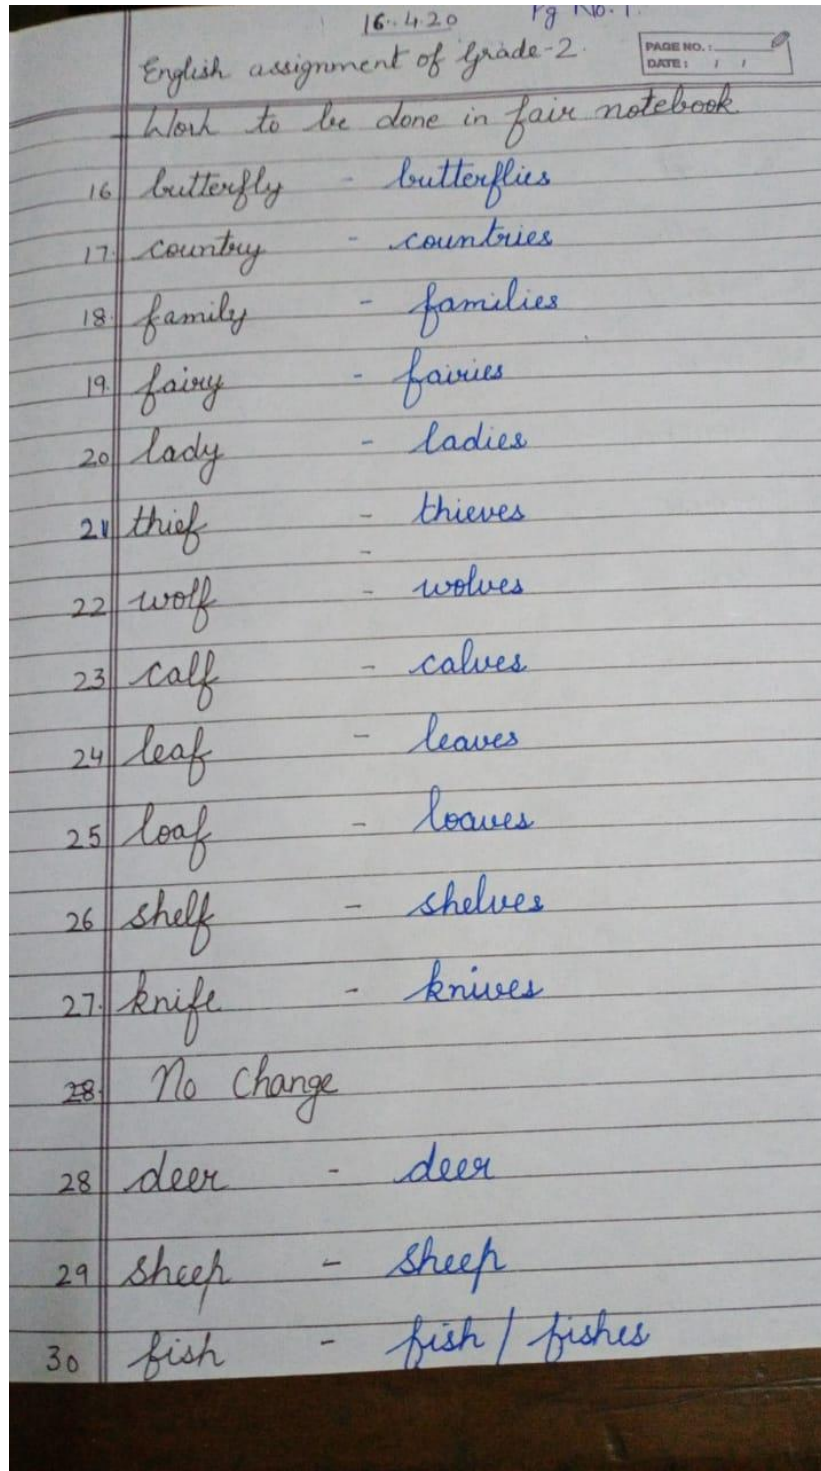 16.4.20 Pg No. 1.
English assignment of Grade-2.
PAGE NO. :
DATE : / /
Work to be done in fair notebook
16 butterfly - butterflies
17. country - countries
18. family - families
19. fairy - fairies
20 lady - ladies
21 thief - thieves
-
22 wolf - wolves
23 calf - calves
24 leaf - leaves
25 loaf - loaves
26 shelf - shelves
27. knife - knives
28. No Change
28 deer - deer
29 sheep - sheep
30 fish - fish / fishes